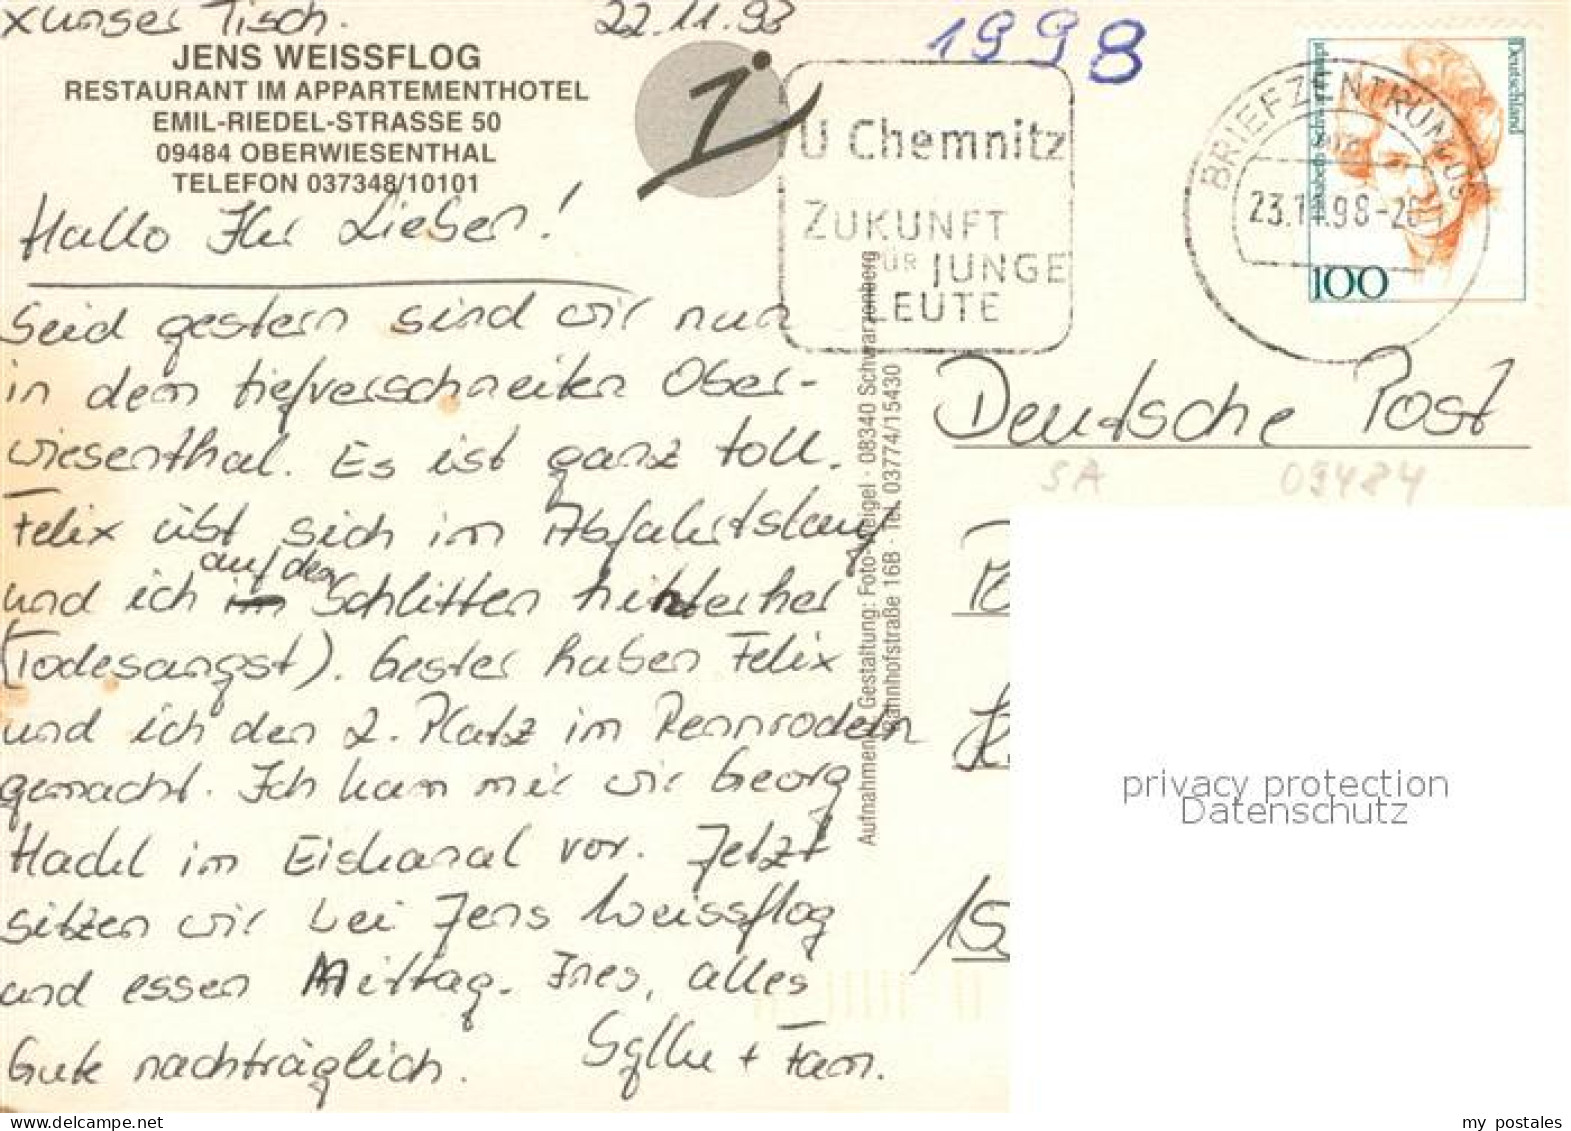 x unser Tisch. 22.11.93
1998
JENS WEISSFLOG
RESTAURANT IM APPARTEMENTHOTEL
EMIL-RIEDEL-STRASSE 50
09484 OBERWIESENTHAL
TELEFON 037348/10101
TU Chemnitz
ZUKUNFT
FÜR JUNGE
LEUTE
BRIEFZENTRUM 09
23.11.98-20
Deutschland
Elisabeth Schwarzhaupt
100
Hallo Ihr Lieben!
Seid gestern sind wir nun
in dem tiefverschneiten Ober-
wiesenthal. Es ist ganz toll.
Felix übt sich im Abfahrtslauf
auf den
und ich im Schlitten hinterher
(Todesangst). Gester haben Felix
und ich den 2. Platz im Rennrodeln
gemacht. Ich kam mir wir Georg
Hackl im Eiskanal vor. Jetzt
sitzen wir bei Jens Weissflog
und essen Mittag. Ines, alles
Gute nachträglich. Sylke + Fam.
Aufnahmen Gestaltung: Foto-Weigel · 08340 Schwarzenberg
Bahnhofstraße 16B · Tel. 03774/15430
Deutsche Post
SA 09484
privacy protection
Datenschutz
my postales
https://www.delcampe.net